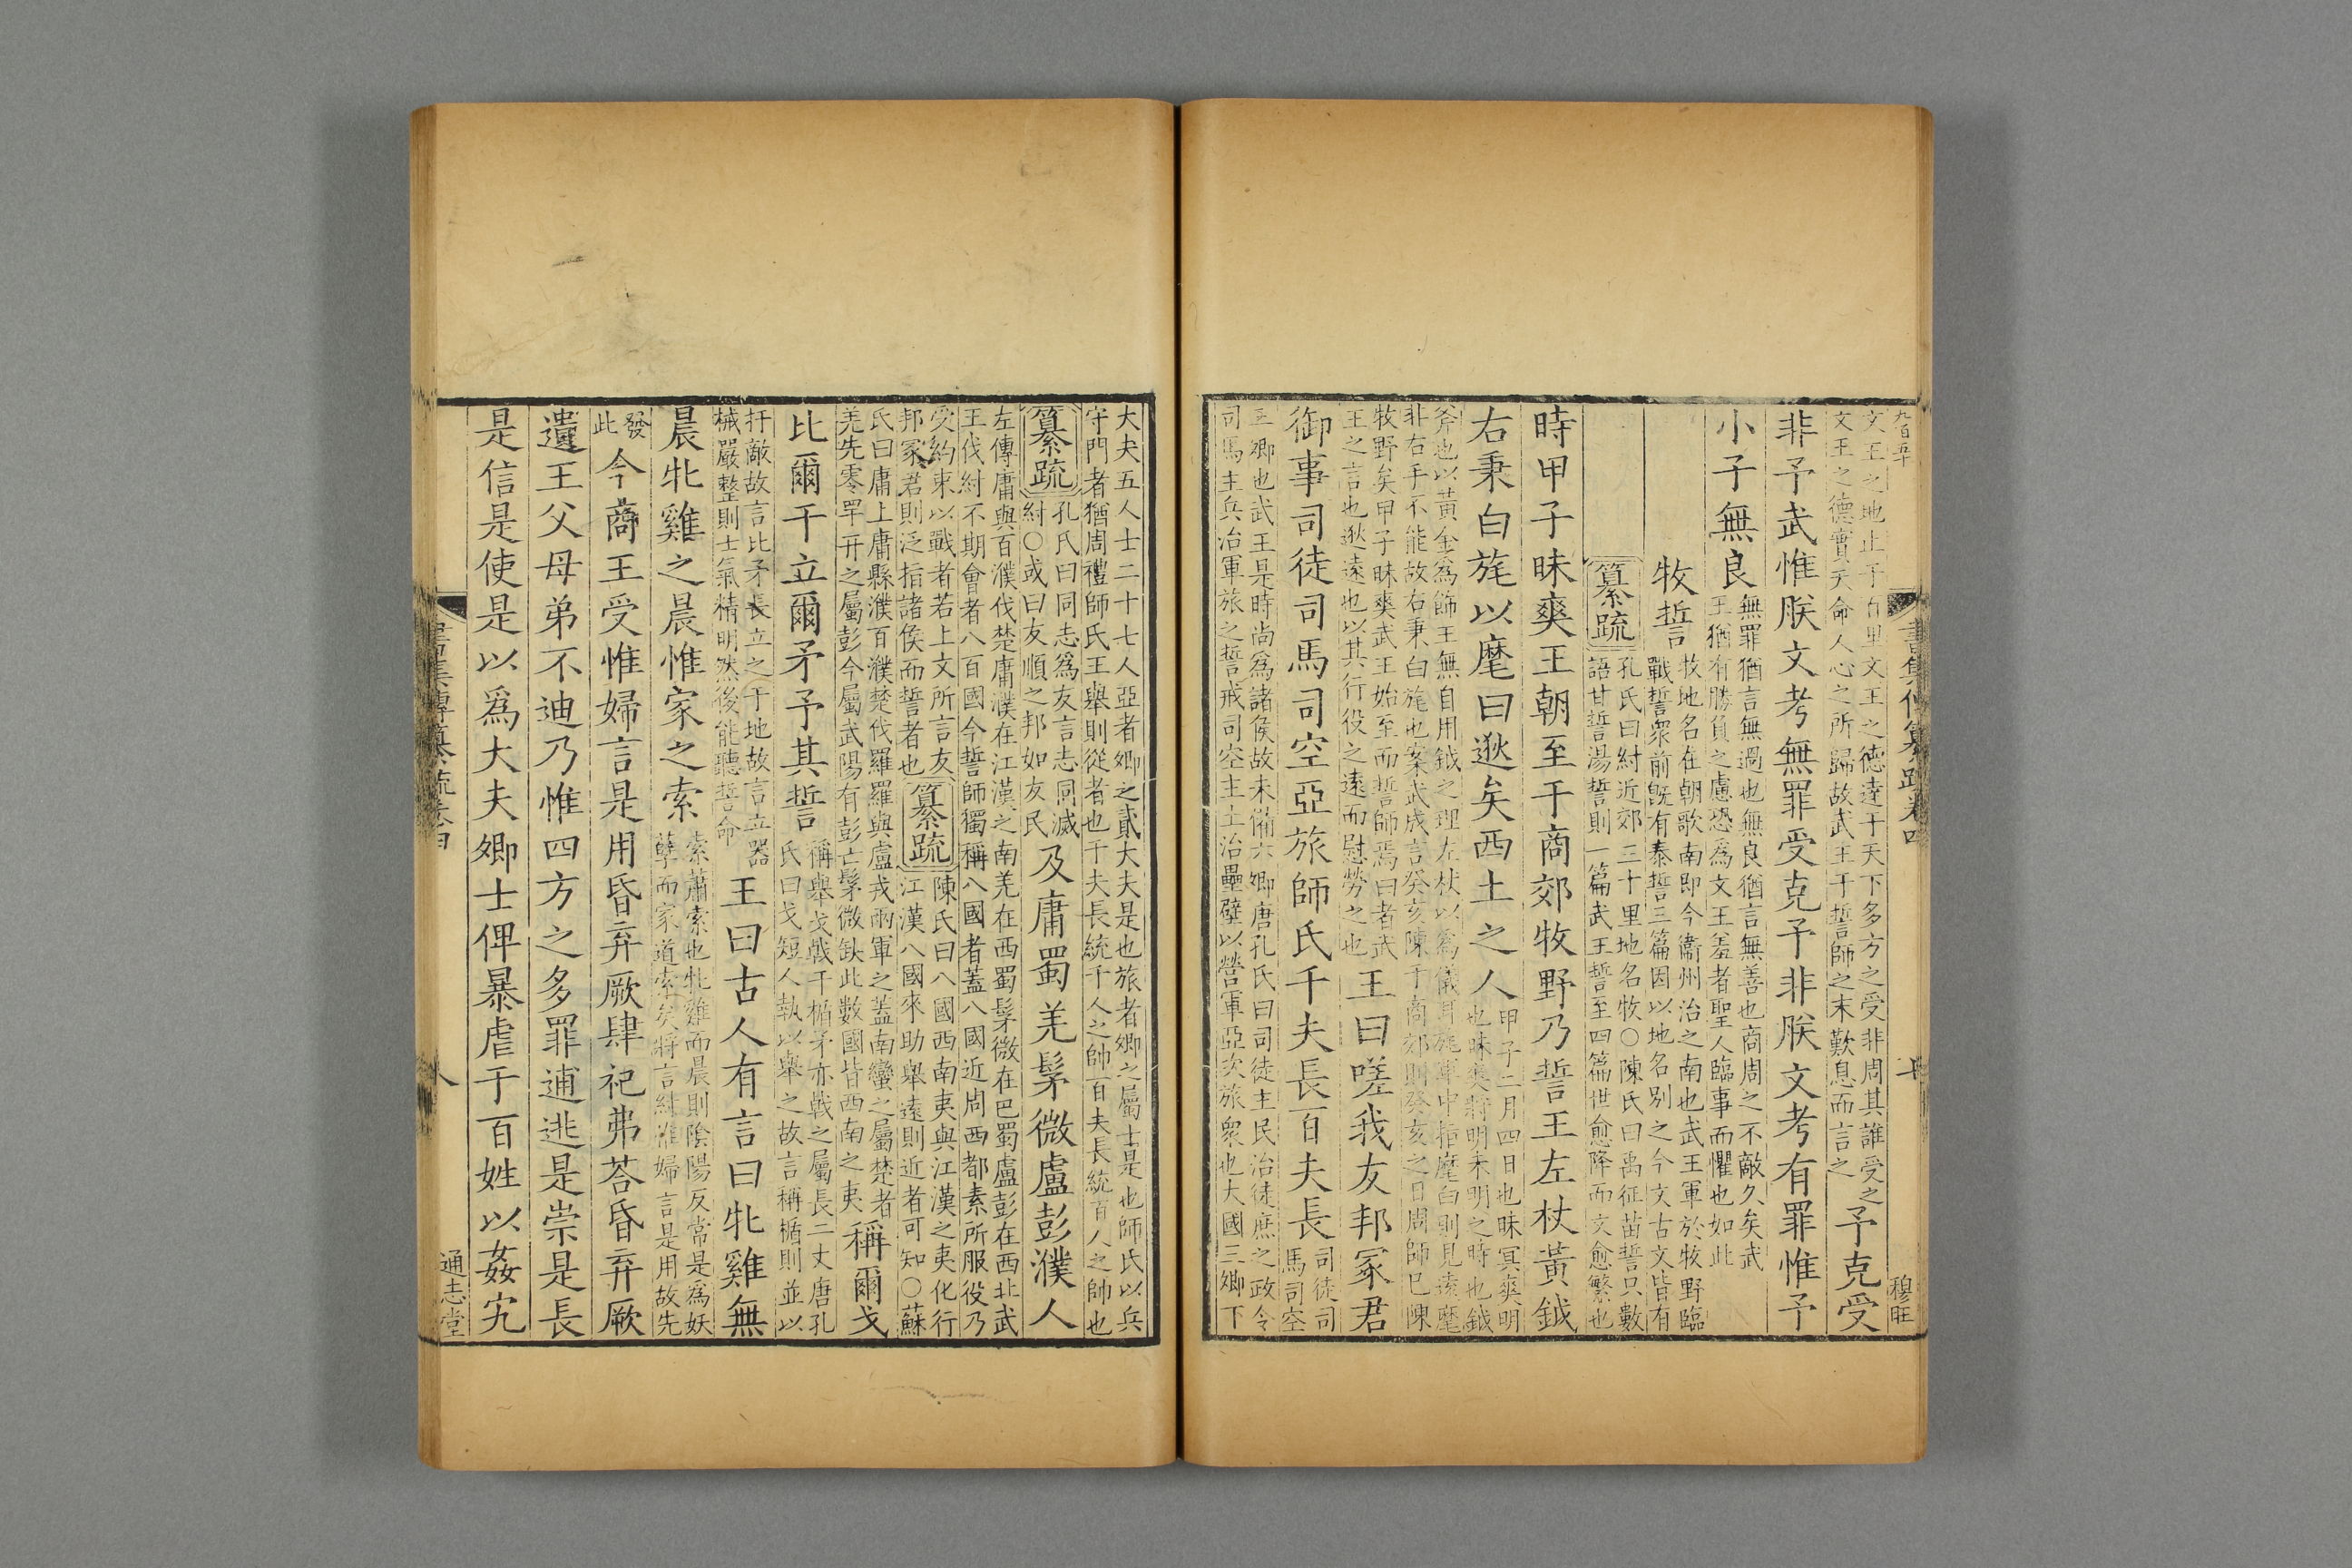 九百五十
書集傳纂疏卷四
穆旺
文王之地止于百里文王之德達于天下多方之受非周其誰受之
文王之德實天命人心之所歸故武王于誓師之末歎息而言之
予克受
非予武惟朕文考無罪受克予非朕文考有罪惟予
小子無良
無罪猶言無過也無良猶言無善也商周之不敵久矣武
王猶有勝負之慮恐為文王羞者聖人臨事而懼也如此
牧誓
牧地名在朝歌南即今衞州治之南也武王軍於牧野臨
戰誓衆前既有泰誓三篇因以地名别之今文古文皆有
纂疏
孔氏曰紂近郊三十里地名牧○陳氏曰禹征苗誓只數
語甘誓湯誓則一篇武王誓至四篇世愈降而文愈繁也
時甲子昧爽王朝至于商郊牧野乃誓王左杖黃鉞
右秉白旄以麾曰逖矣西土之人
甲子二月四日也昧冥爽明
也昧爽將明未明之時也鉞
斧也以黃金為飾王無自用鉞之理左杖以為儀耳旄軍中指麾白則見遠麾
非右手不能故右秉白旄也案武成言癸亥陳于商郊則癸亥之日周師已陳
牧野矣甲子昧爽武王始至而誓師焉曰者武
王之言也逖遠也以其行役之遠而慰勞之也
王曰嗟我友邦冢君
御事司徒司馬司空亞旅師氏千夫長百夫長
司徒司
馬司空
三卿也武王是時尚為諸侯故未備六卿唐孔氏曰司徒主民治徒庶之政令
司馬主兵治軍旅之誓戒司空主土治壘壁以營軍亞次旅衆也大國三卿下
大夫五人士二十七人亞者卿之貳大夫是也旅者卿之屬士是也師氏以兵
守門者猶周禮師氏王舉則從者也千夫長統千人之帥百夫長統百人之帥也
纂疏
孔氏曰同志為友言志同滅
紂○或曰友順之邦如友民
及庸蜀羌髳微盧彭濮人
左傳庸與百濮伐楚庸濮在江漢之南羌在西蜀髳微在巴蜀盧彭在西北武
王伐紂不期會者八百國今誓師獨稱八國者蓋八國近周西都素所服役乃
受約束以戰者若上文所言友
邦冢君則泛指諸侯而誓者也
纂疏
陳氏曰八國西南夷與江漢之夷化行
江漢八國來助舉遠則近者可知○蘇
氏曰庸上庸縣濮百濮楚伐羅羅與盧戎兩軍之蓋南蠻之屬楚者
羌先零罕幵之屬彭今屬武陽有彭亡髳微缺此數國皆西南之夷
稱爾戈
比爾干立爾矛予其誓
稱舉戈戟干楯矛亦戟之屬長二丈唐孔
氏曰戈短人執以舉之故言稱楯則並以
扞敵故言比矛長立之于地故言立器
械嚴整則士氣精明然後能聽誓命
王曰古人有言曰牝雞無
晨牝雞之晨惟家之索
索蕭索也牝雞而晨則陰陽反常是為妖
孽而家道索矣將言紂惟婦言是用故先
發
此
今商王受惟婦言是用昏弃厥肆祀弗荅昏弃厥
遺王父母弟不迪乃惟四方之多罪逋逃是崇是長
是信是使是以為大夫卿士俾暴虐于百姓以姦宄
書集傳纂疏卷四
八
通志堂